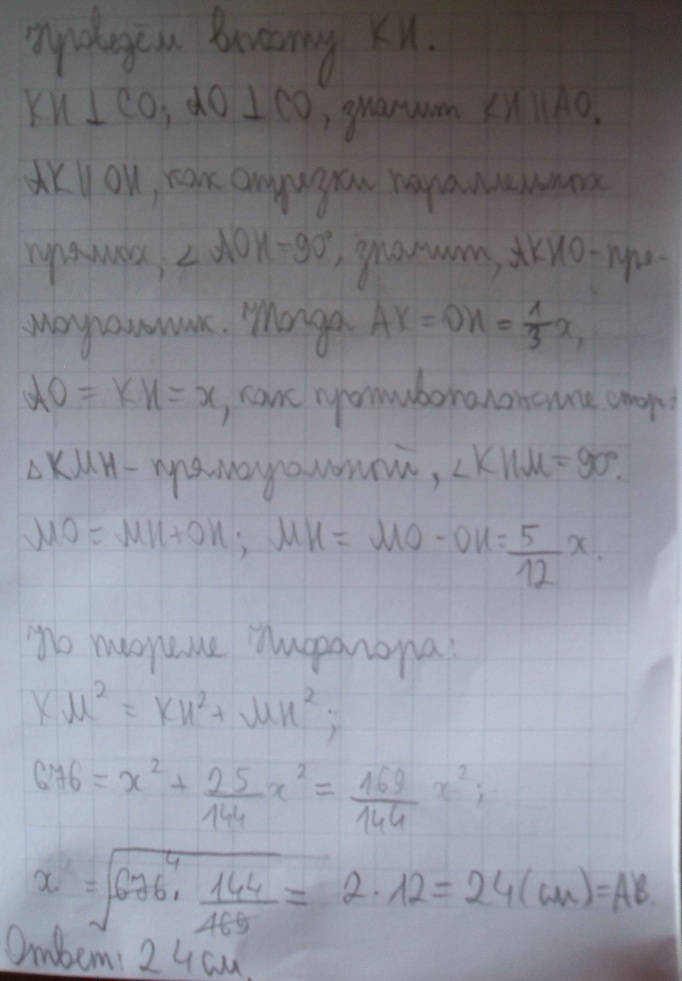 Проведём высоту KH.
KH⊥CO; AO⊥CO, значит KH||AO.
AK||OH, как отрезки параллельных
прямых, ∠AOH=90°, значит, AKHO-пря-
моугольник. Тогда AK=OH=1/3x,
AO=KH=x, как противоположные стор.
△KMH-прямоугольный, ∠KHM=90°.
MO=MH+OH; MH=MO-OH=5/12x.
По теореме Пифагора:
KM²=KH²+MH²;
676=x²+25/144x²=169/144x²;
x=√(676⁴·144/169)=2·12=24(см)=AB.
Ответ: 24см.